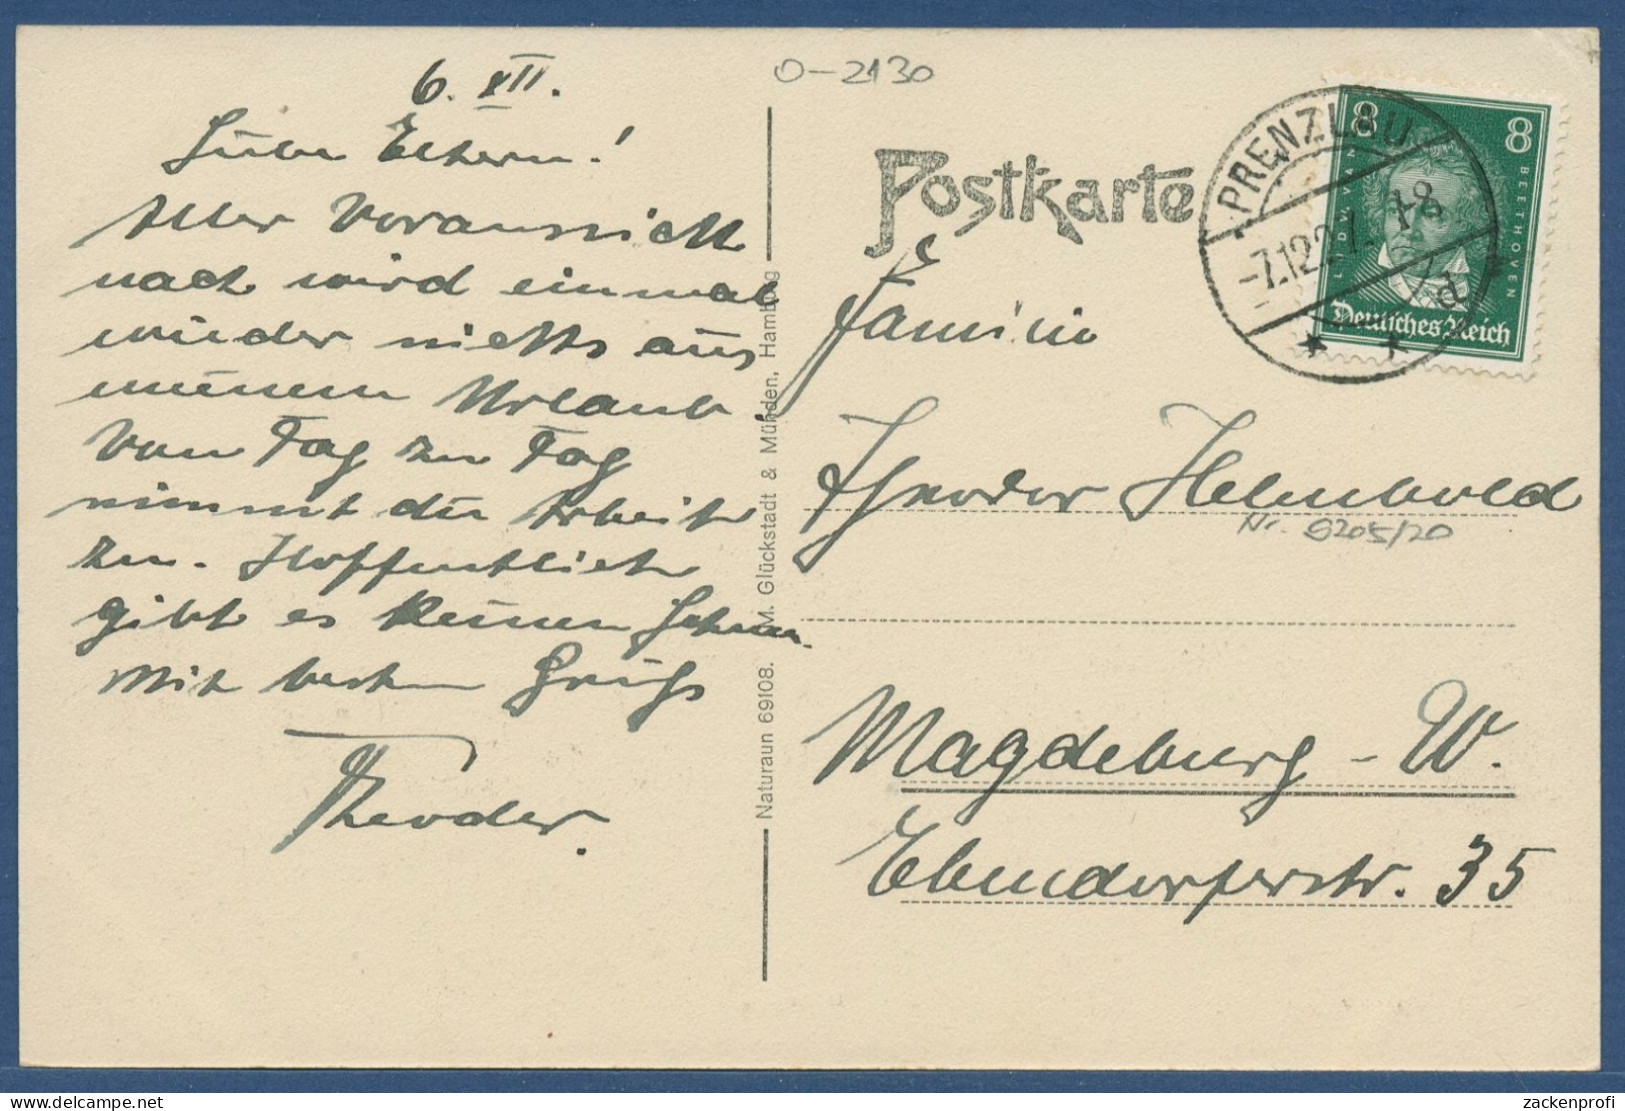 6. XII.
Liebe Eltern!
Aller Voraussicht
nach wird einmal
wieder nichts aus
meinem Urlaub.
Von Tag zu Tag
nimmt die Arbeit
zu. Hoffentlich
gibt es keinen Schnee.
Mit besten Gruß
Theodor.
O-2130
Postkarte
PRENZLAU
-7.12.27. 7-8
d
8 8
LUDW. VAN
BEETHOVEN
Deutsches Reich
Familie
Theodor Helmbold
Nr. 9205/20
Magdeburg - W.
Ebendorferstr. 35
Naturaun 69108. M. Glückstadt & Münden, Hamburg
zackenprofi
delcampe.net